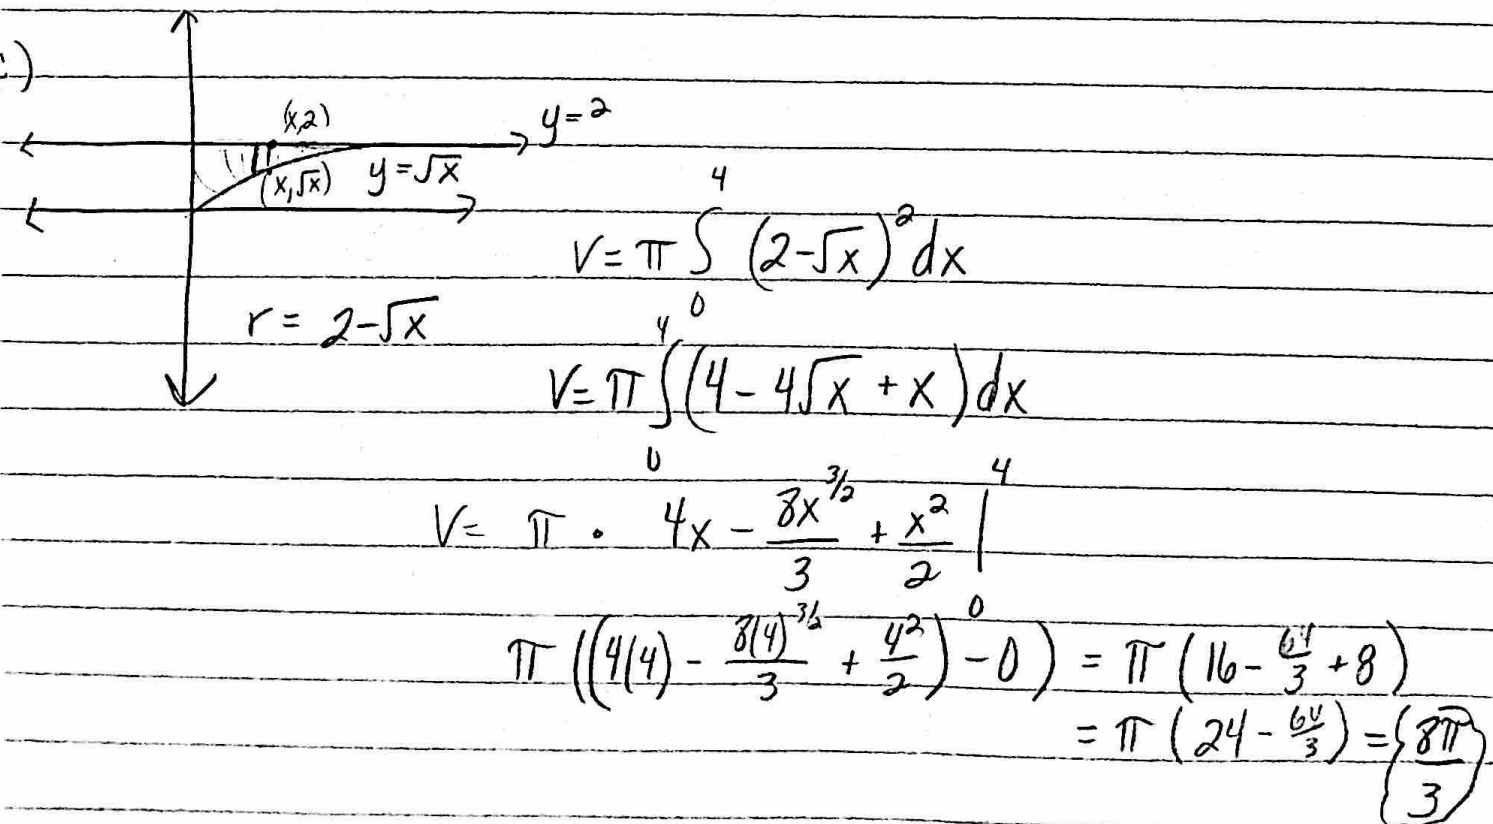 :)
(x,2)
y=2
(x,√x) y=√x
V= π ∫₀⁴ (2-√x)² dx
r= 2-√x
V= π ∫₀⁴ (4-4√x +x) dx
V= π · 4x - 8x^(3/2)/3 + x²/2 |₀⁴
π ((4(4) - 8(4)^(3/2)/3 + 4²/2) - 0) = π (16 - 64/3 + 8)
= π (24 - 64/3) = 8π/3